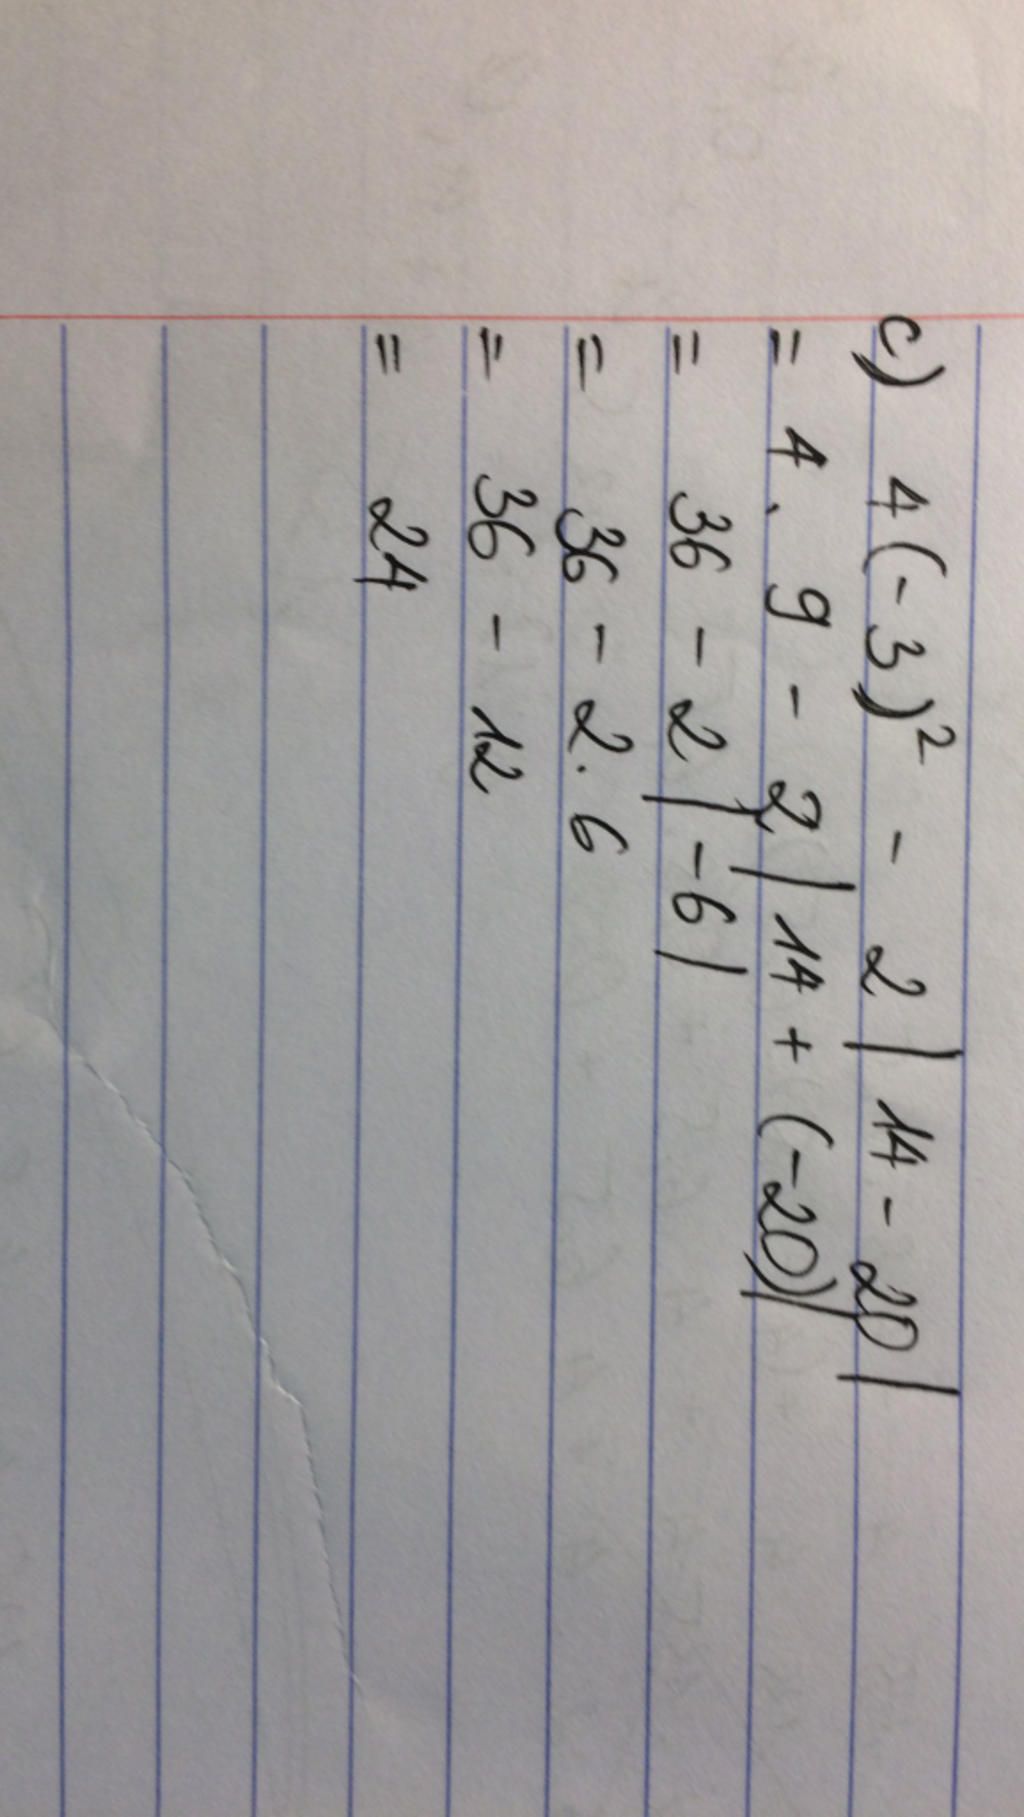 c) 4(-3)² - 2|14 - 20|
= 4 . 9 - 2|14 + (-20)|
= 36 - 2|-6|
= 36 - 2.6
= 36 - 12
= 24